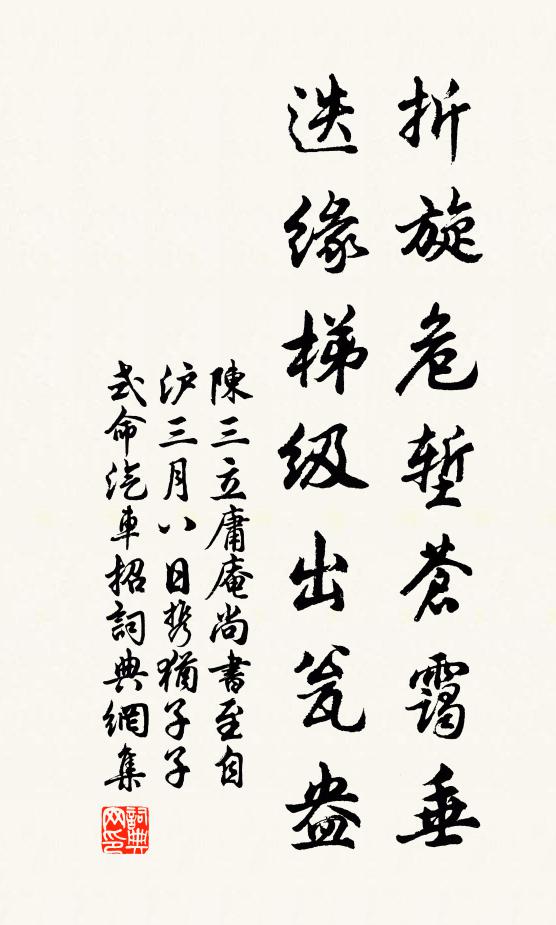 折旋危堑苍霭垂
迭缘梯级出瓮盎
陳三立庸庵尚書至自
沪三月八日携猶子子
式命汽車招詞典網集
詞典
网印